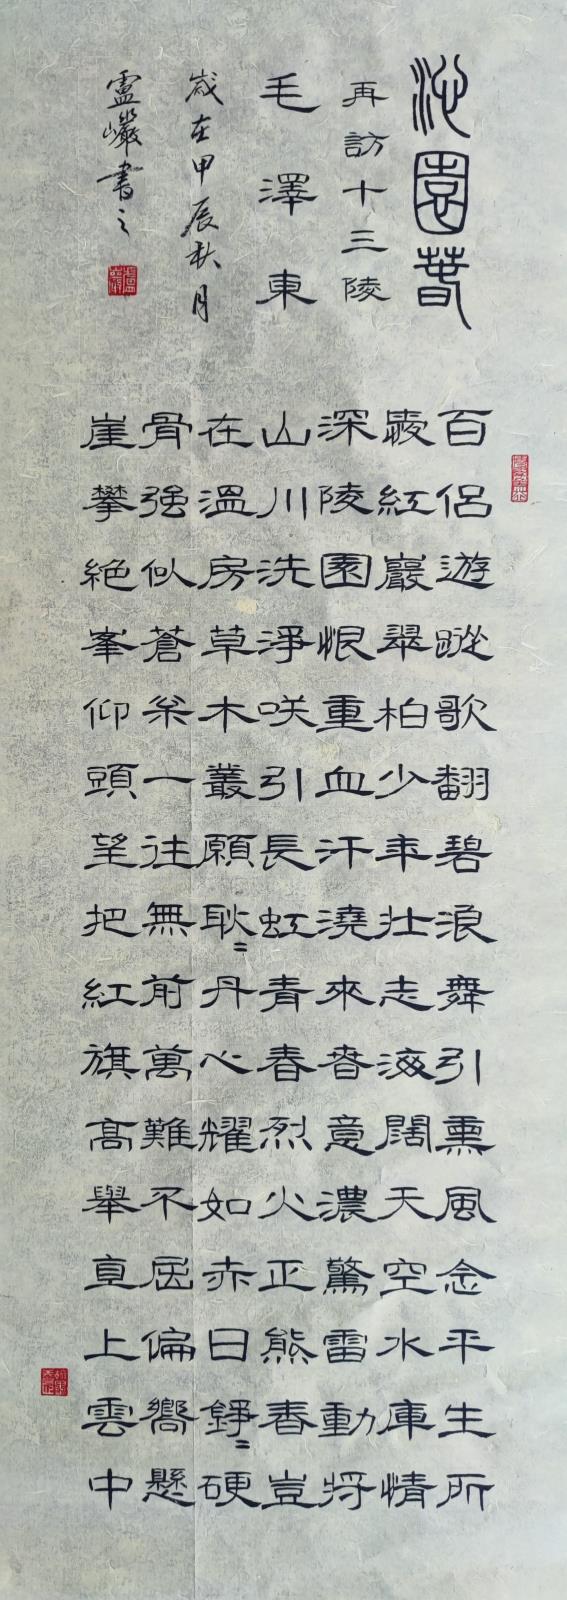 沁園春
再訪十三陵
毛澤東
歲在甲辰秋月
盧巖書之
百侶遊蹤歌翻碧浪舞引熏風念平生所
紅巖翠柏少年壯志海闊天空水庫情
深陵園恨重血汗澆來春意濃驚雷動將
山川洗淨咲引長虹青春烈火正熊春豈
在溫房草木叢願耿〻丹心耀如赤日錚〻硬
骨強似蒼枀一往無前萬難不屈偏嚮懸
崖攀絕峯仰頭望把紅旗高舉直上雲中